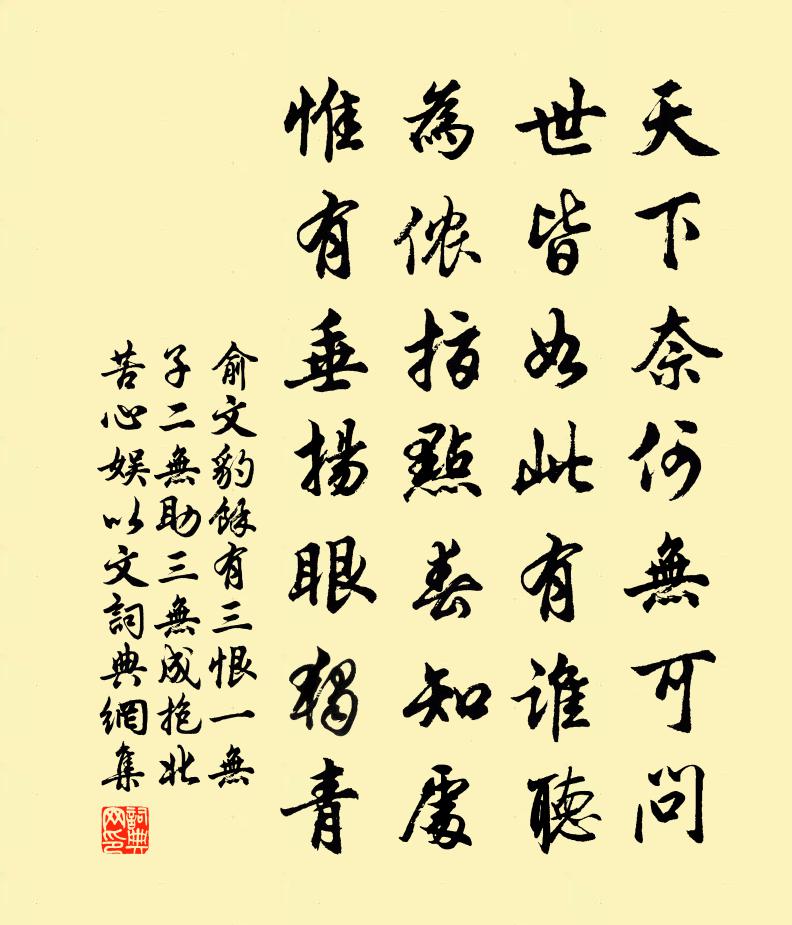 天下奈何無可問
世皆如此有誰聽
為儂指點春知處
惟有垂揚眼獨青
俞文豹餘有三恨一無
子二無助三無成抱此
苦心娛以文詞典網集
詞典
網印